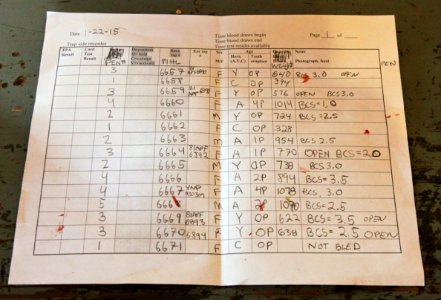 Date -22-15
Time blood draws begin
Page 1 of
Trap side recorder
Time blood draws end
Time test results available
FPA Result
Card Test Result
PEN#
Back Tag# PIHL
Ear tag #
Sex M/F
Class (A/Y/C)
Age
Tooth eruption
WEIGHT
Notes
Photograph, fecal
PEN
3 6657 F Y OP 640 BCS 3.0 OPEN
1 6658 F C OP 374
3 6659 F Y OP 576 OPEN BCS 3.0
4 6660 F A 4P 1014 BCS=1.0
2 6661 M Y OP 724 BCS=2.5
1 6662 F C OP 328
2 6663 M A 1P 954 BCS 2.5
3 6664 F A 1P 770 OPEN BCS=2.0
2 6665 M Y OP 738 BCS 3.0
4 6666 F A 2P 894 BCS=3.5
4 6667 F A 4P BCS, 3.0
5 M A 2P BCS=2.5
3 6669 F Y OP 622 BCS=3.5 OPEN
3 6670 6894 F Y OP 638 BCS=2.5 OPEN
1 6671 F C OP NOT BLED